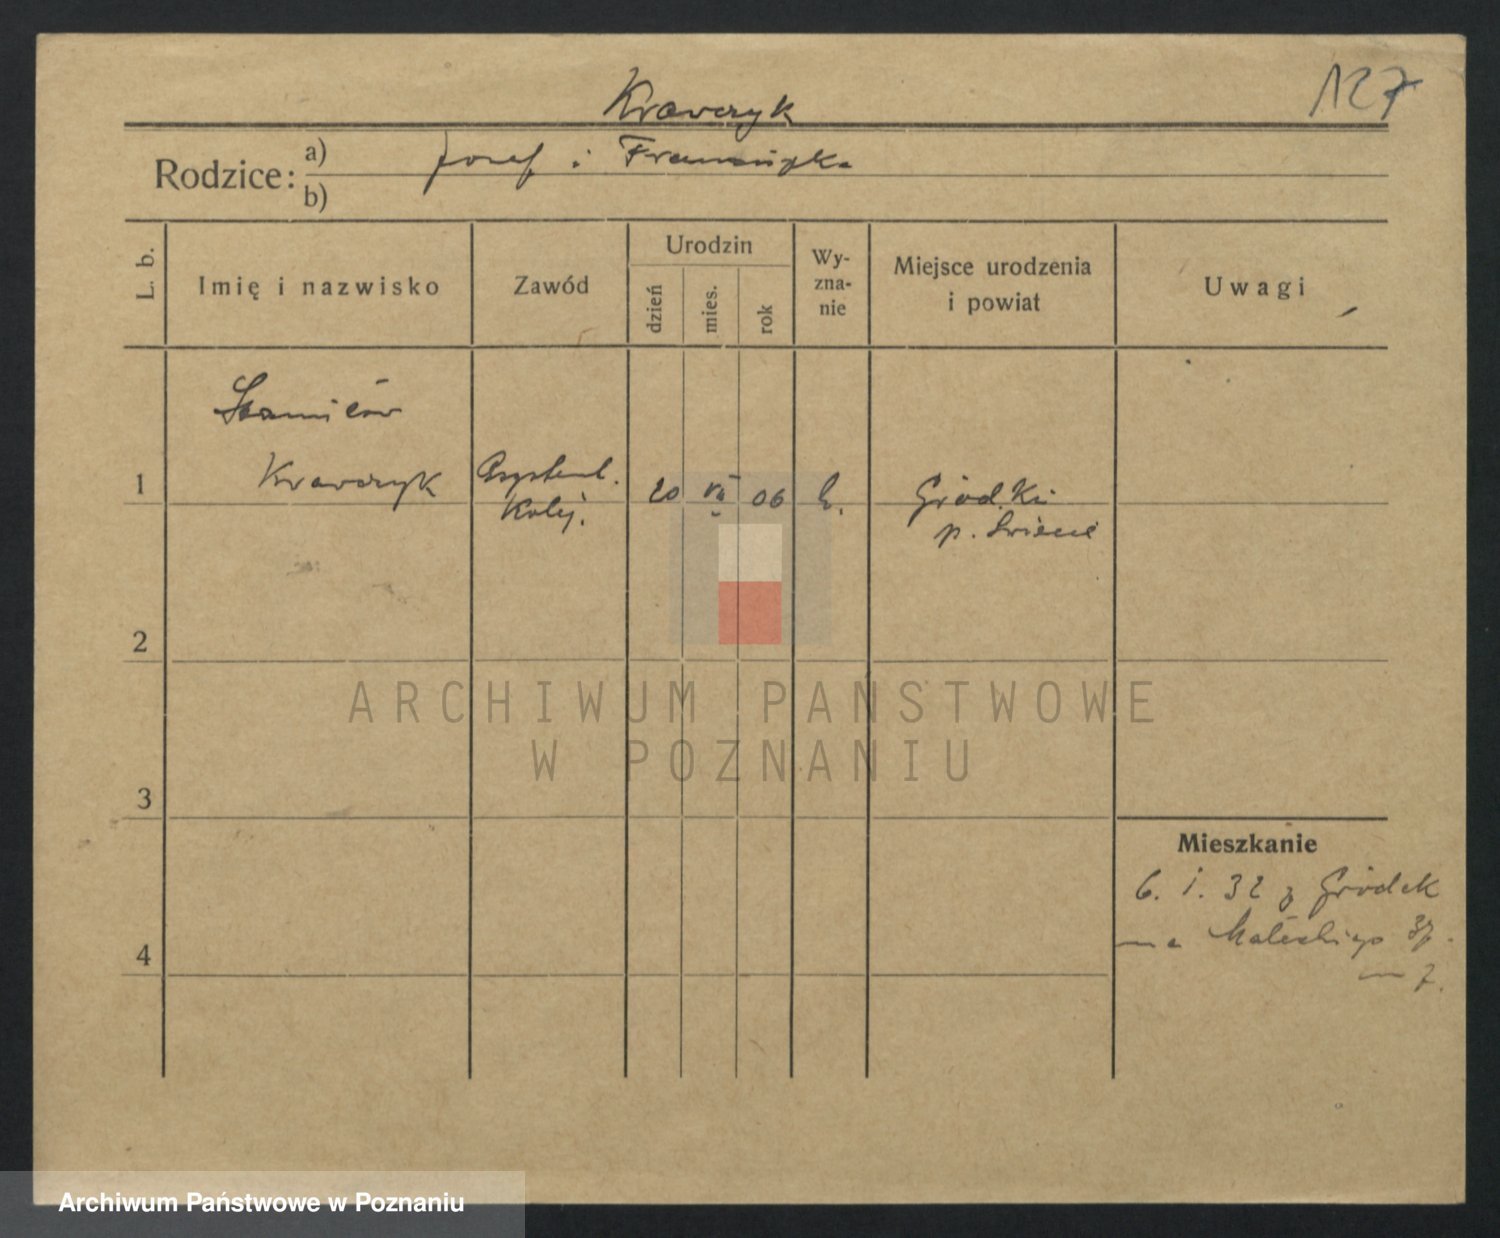 127
Krawczyk
Rodzice: a) Józef i Franciszka
b)
L. b.
Imię i nazwisko
Zawód
Urodzin
dzień
mies.
rok
Wy-
zna-
nie
Miejsce urodzenia
i powiat
Uwagi
1
Krawczyk
Asystent.
Kolej.
20 VII 06
Gródki
p. Świecie
2
ARCHIWUM PAŃSTWOWE
W POZNANIU
3
Mieszkanie
6. I. 32 z Gródek
na Małeckiego 37.
m 7.
4
Archiwum Państwowe w Poznaniu